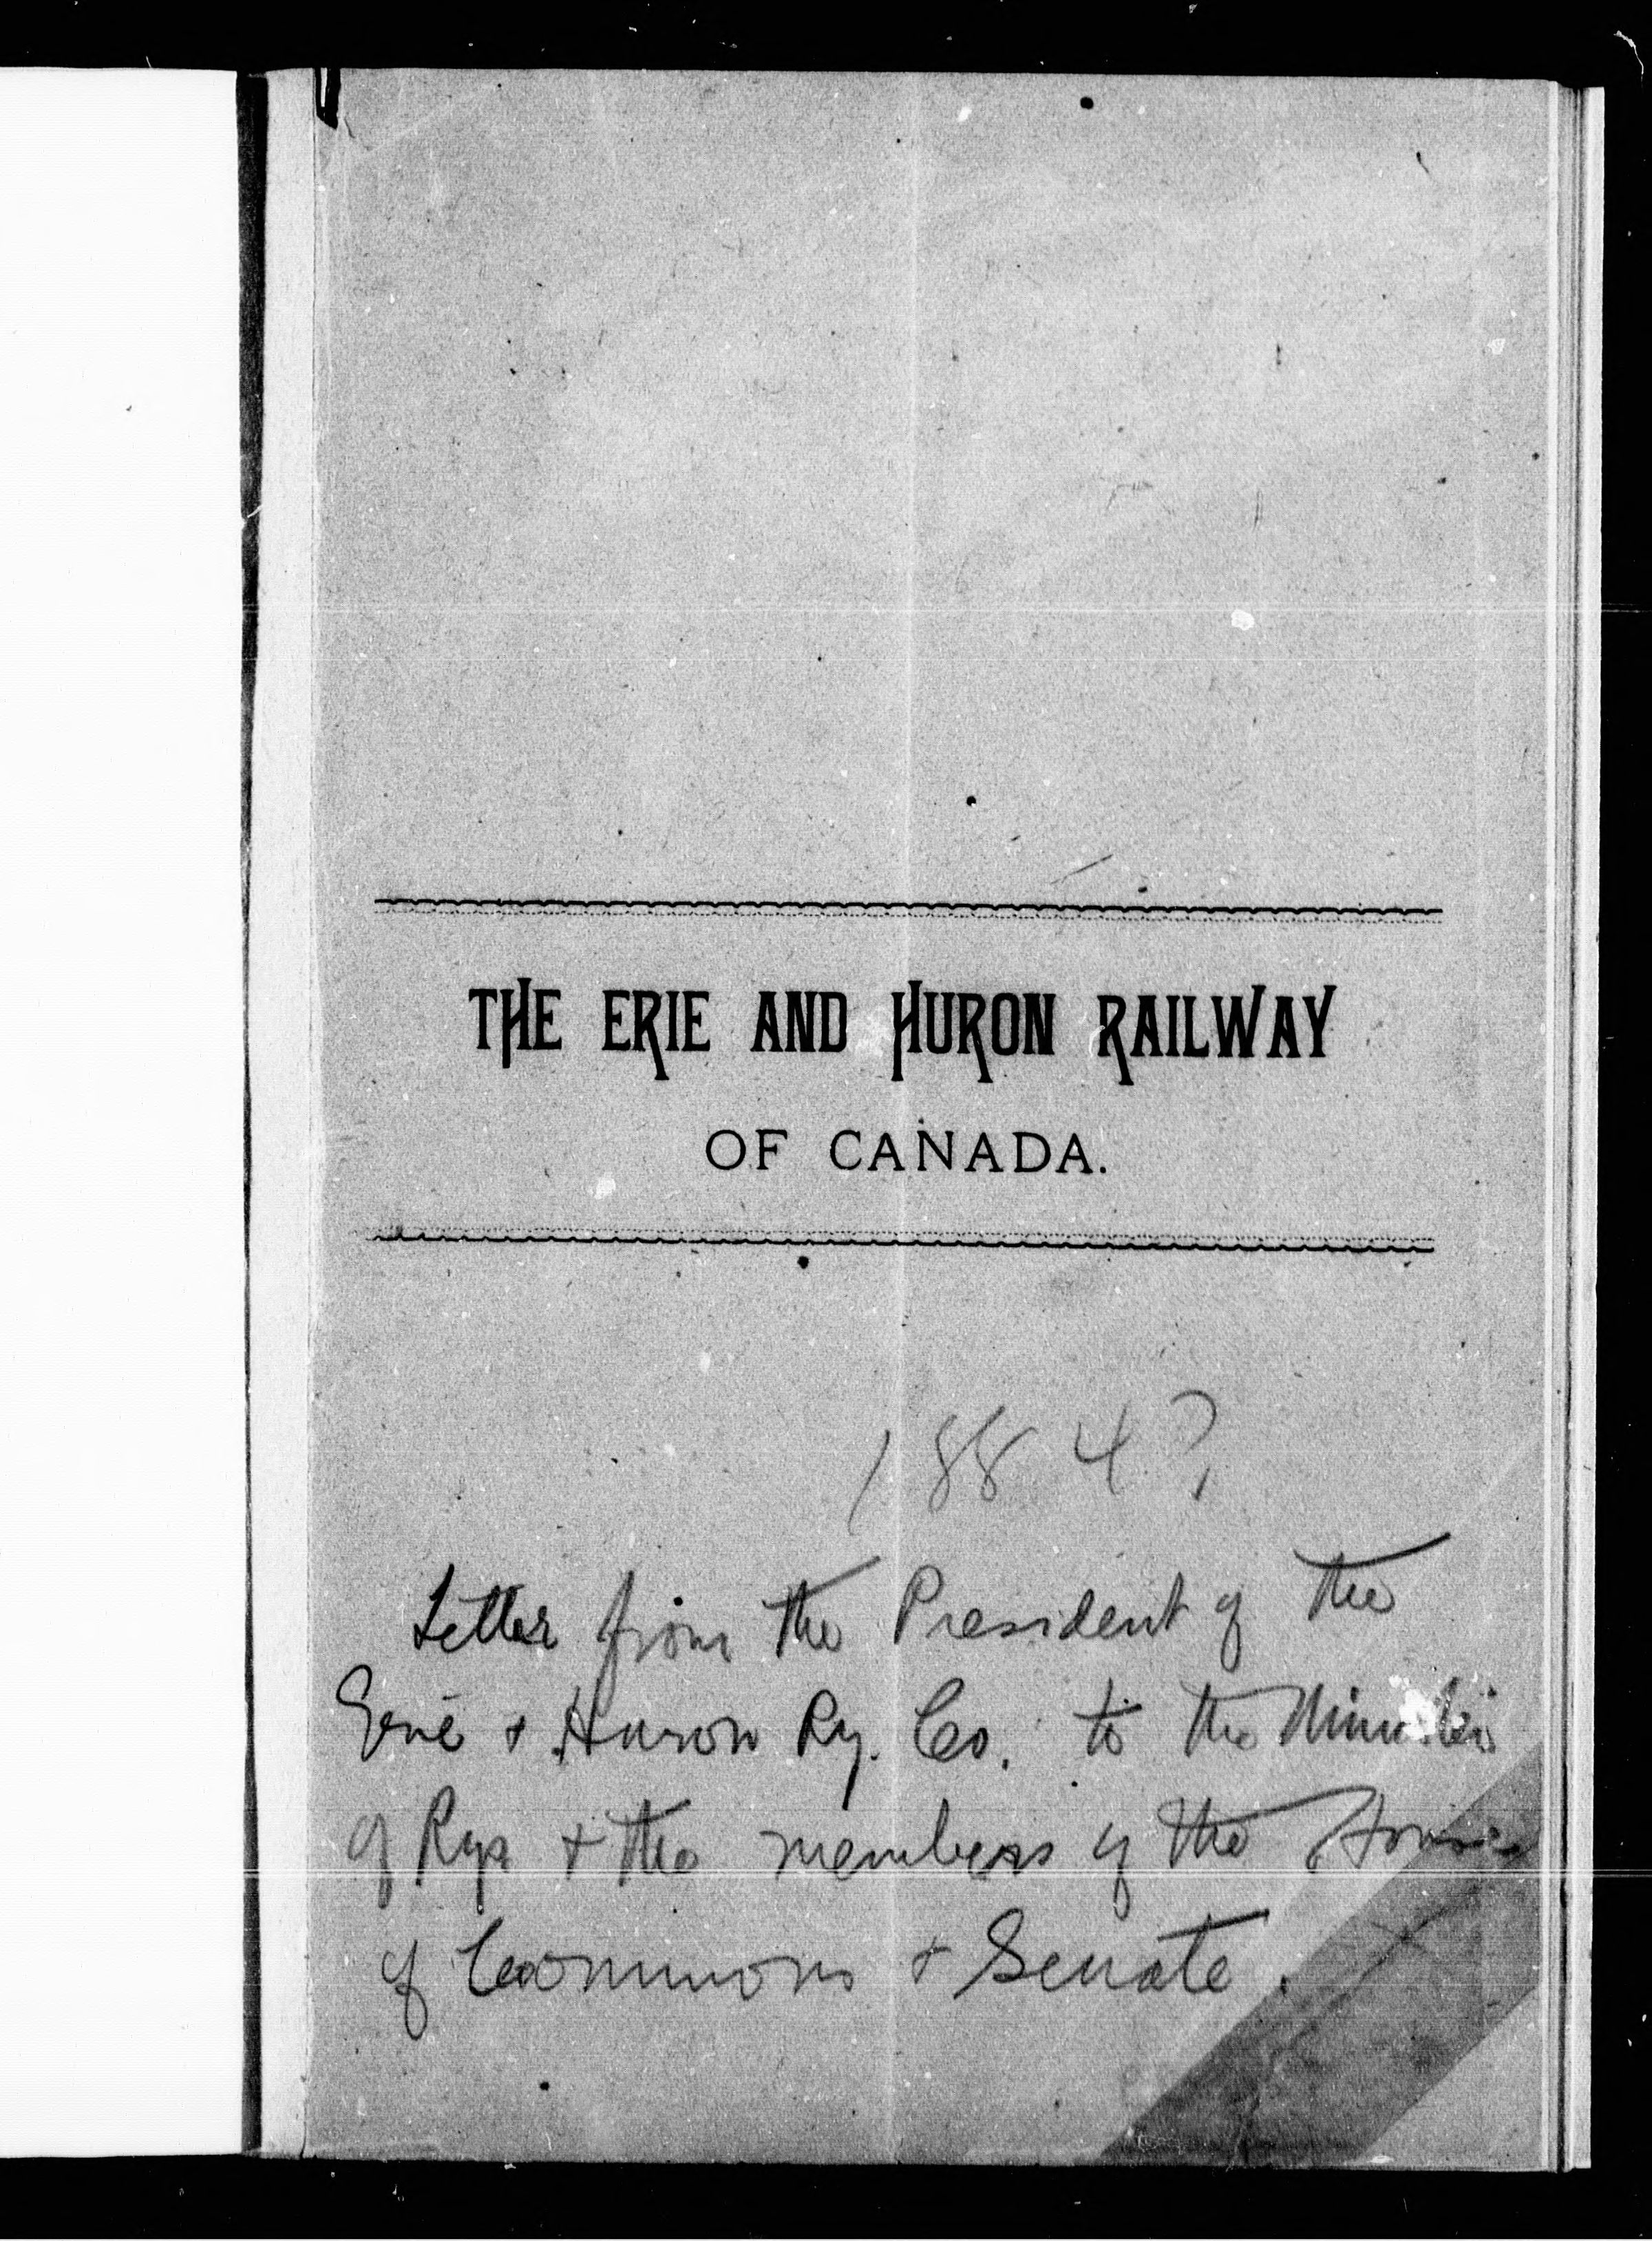 THE ERIE AND HURON RAILWAY
OF CANADA.
1884?
Letter from the President of the
Erie & Huron Ry. Co. to the Minister
of Rys & the members of the House
of Commons & Senate.